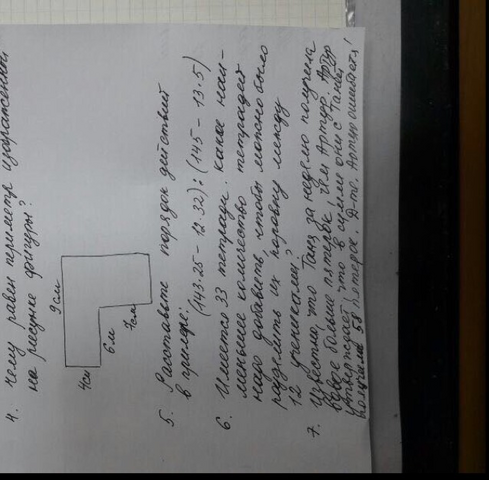 4. Чему равен периметр изображенной
на рисунке фигуры?
9 см
4см
6 м
7см
5. Расставьте порядок действий
в примере: (143·25 - 12·32) : (145 - 13·5)
6. Имеется 33 тетради. Какое наи-
меньшее количество тетрадей
надо добавить, чтобы можно было
разделить их поровну между
12 учениками?
7. Известно, что Таня за неделю получила
вдвое больше пятерок, чем Артур. Артур
утверждает, что в сумме они с Таней
получили 58 пятерок. Д-те. Артур ошибается!